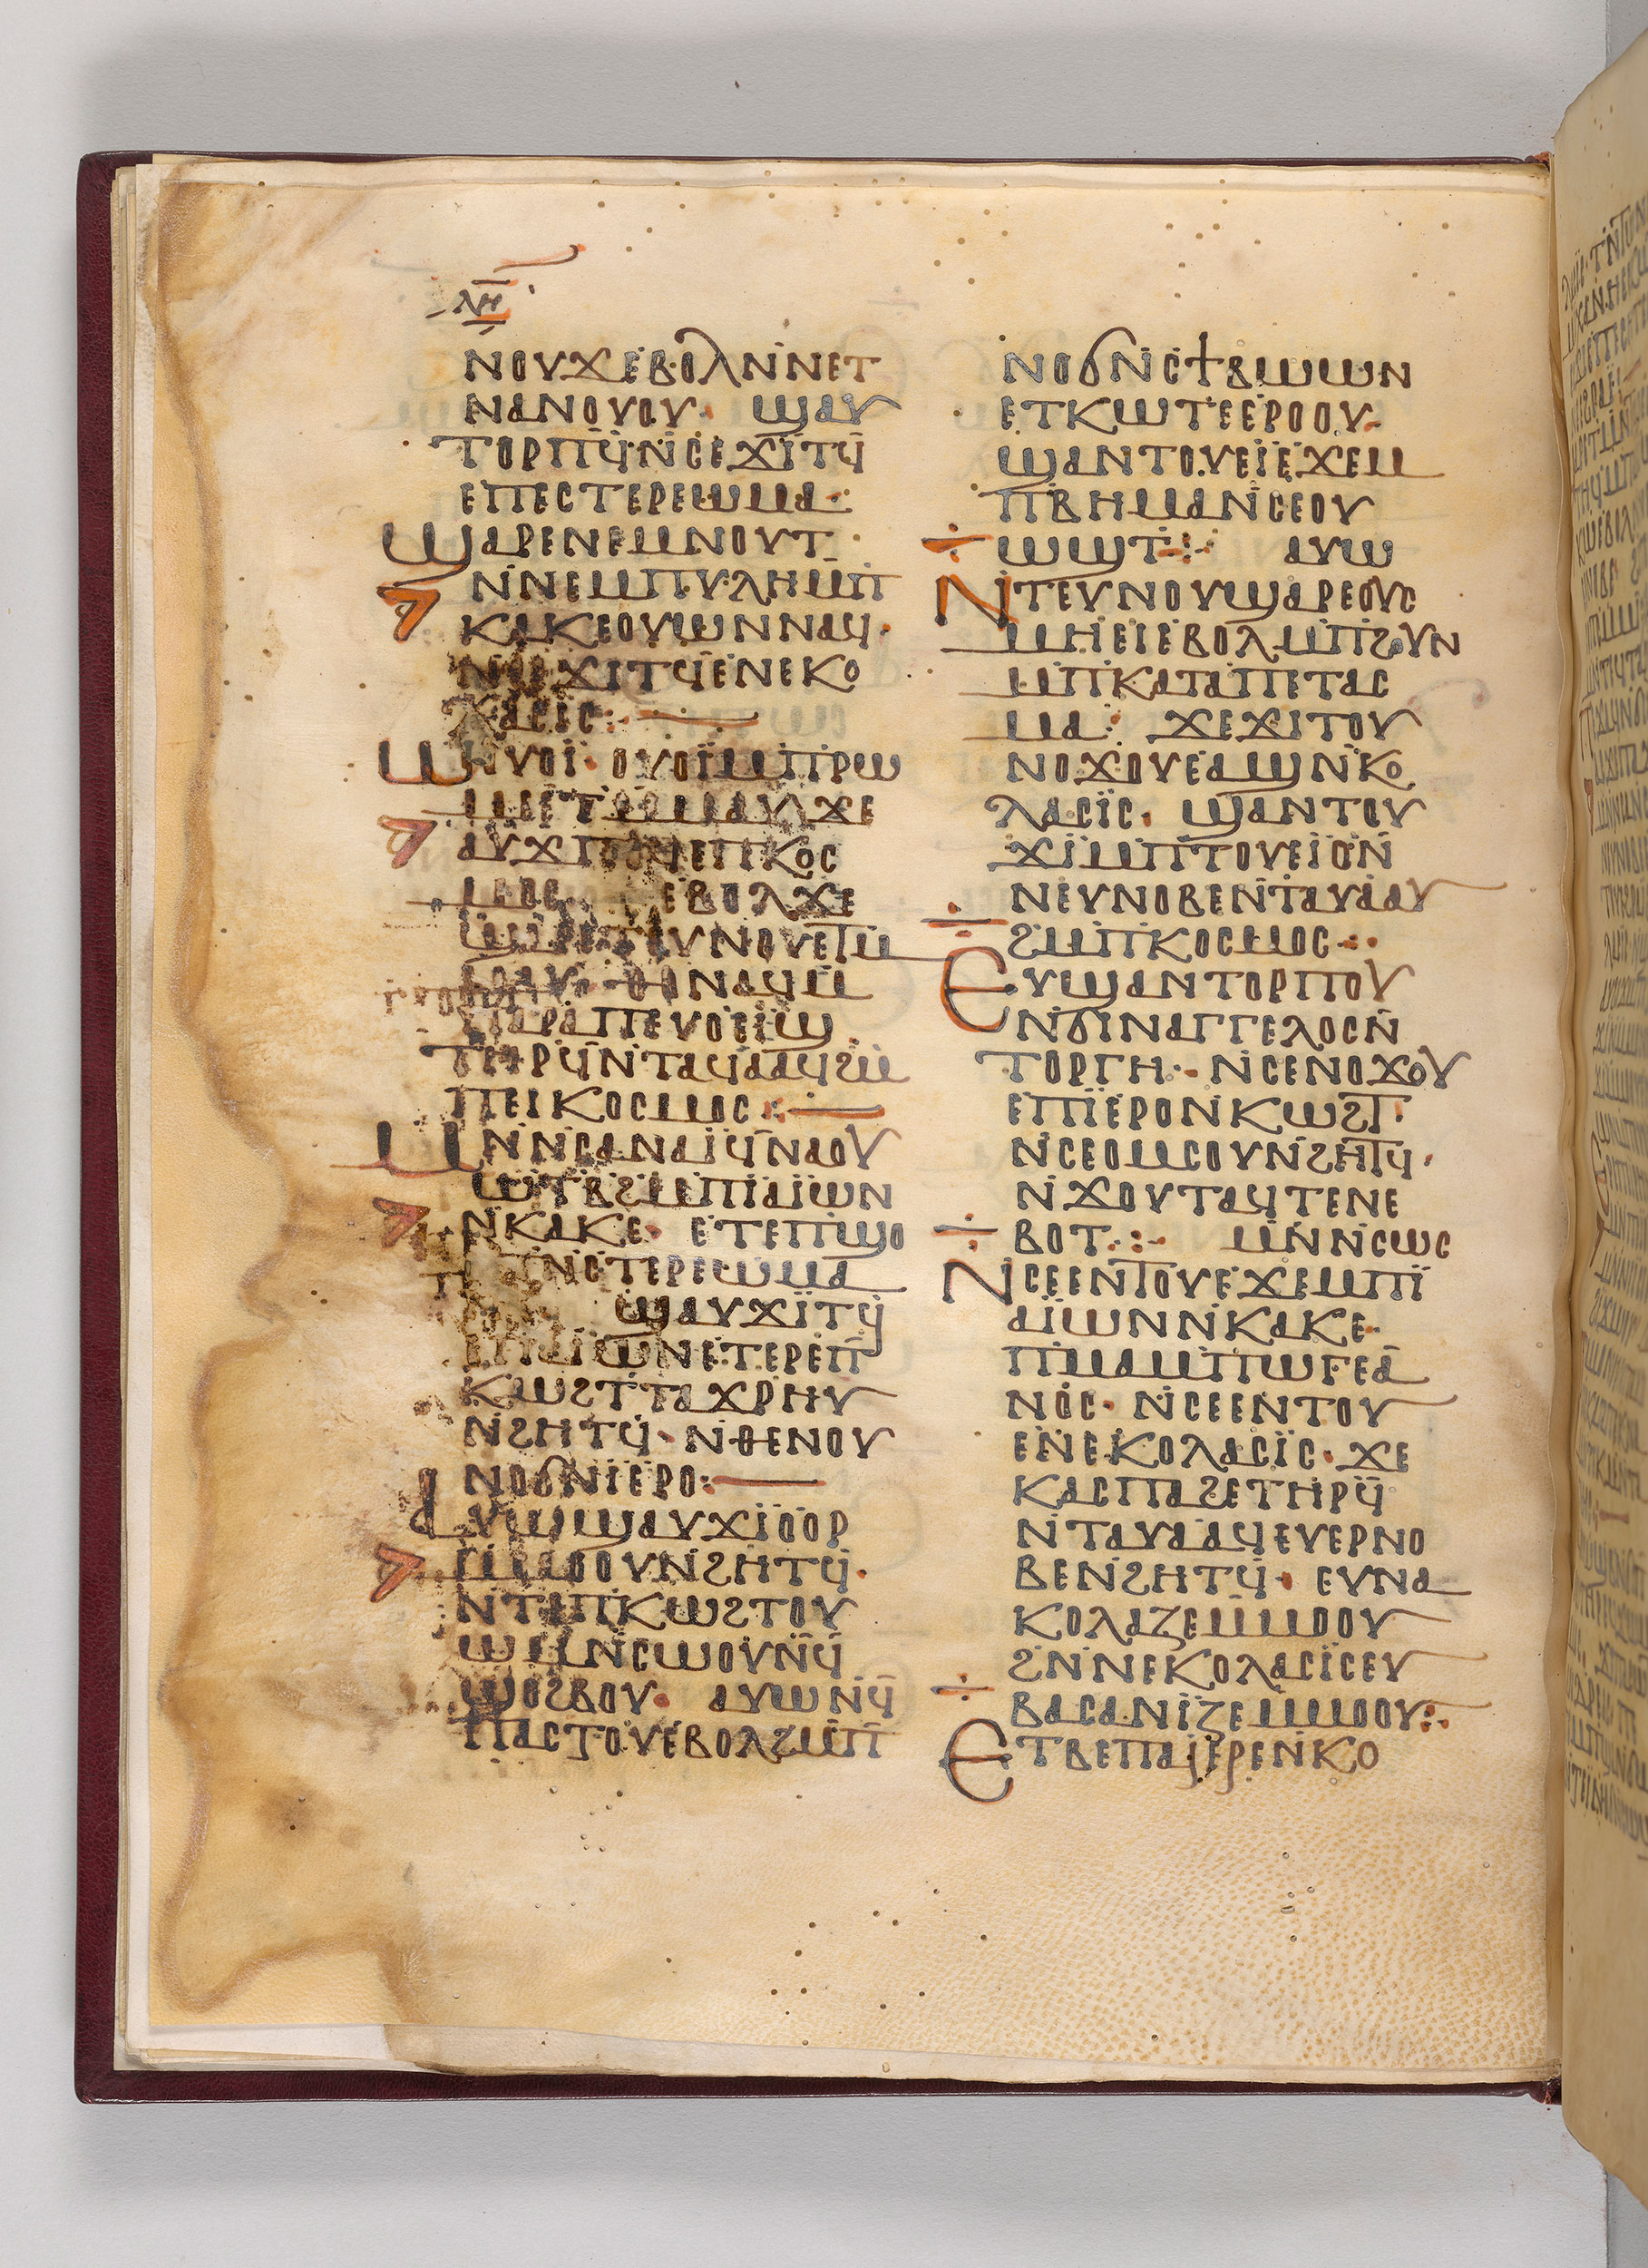 ⲗⲏ
ⲛⲟⲩϫⲉⲃⲟⲗⲛⲛⲉⲧ
ⲉⲛⲁⲛⲟⲩⲟⲩ· ϣⲁⲩ
ⲧⲟⲣⲡϥ·ⲛⲥⲉϫⲓⲧϥ
ⲉⲡⲉⲥⲧⲉⲣⲉⲱⲙⲁ·
ϣⲁⲣⲉⲛⲉⲙⲛⲟⲩⲧ
ⲛⲛⲉⲙⲡⲩⲗⲏⲙⲡ
ⲕⲁⲕⲉⲟⲩⲱⲛⲛⲁϥ·
ϫⲓⲧϥⲉⲛⲉⲕⲟ
ⲗⲁⲥⲓⲥ:
ⲟⲩⲟⲓ· ⲟⲩⲟⲓⲙⲡⲓⲣⲱ
ⲙⲉⲉⲧⲙⲙⲁⲩϫⲉ
ⲁⲩϫⲡⲟϥⲉⲡⲓⲕⲟⲥ
ⲙⲟⲥ ⲉⲃⲟⲗϫⲉ
ϣⲁⲣⲉⲧⲉⲩⲛⲟⲩⲉⲧⲙ
ⲙⲁⲩ ⲛⲁϥⲙ
ⲡⲁⲣⲁⲡⲉⲩⲟⲉⲓϣ
ⲧⲏⲣϥⲛⲧⲁϥⲁⲁϥϩⲙ
ⲡⲉⲓⲕⲟⲥⲙⲟⲥ:
ⲙⲛⲛⲥⲁⲛⲁⲓϥⲛⲁⲟⲩ
ⲱⲧⲃϩⲙⲡⲓⲁⲓⲱⲛ
ⲛⲕⲁⲕⲉ· ⲉⲧⲉⲡϣⲟ
ⲛⲥⲧⲉⲣⲉⲱⲙⲁ
ϣⲁⲩϫⲓⲧϥ
ⲉⲡⲓⲁⲓⲱⲛⲉⲧⲉⲣⲉⲡ
ⲕⲱϩⲧⲧⲁϫⲣⲏⲩ
ⲛϩⲏⲧϥ·ⲛⲑⲉⲛⲟⲩ
ⲛⲟϭⲛⲓⲉⲣⲟ:
ⲁⲩⲱϣⲁⲩϫⲓⲟⲟⲣ
ⲙⲙⲟⲟⲩⲛϩⲏⲧϥ·
ⲛⲧⲉⲡⲕⲱϩⲧⲟⲩ
ⲱⲙⲛⲥⲱⲟⲩⲛϥ
ⲣⲟϩⲃⲟⲩ· ⲁⲩⲱⲛϥ
ⲡⲁⲥⲧⲟⲩⲉⲃⲟⲗϩⲙⲡ
ⲛⲟϭⲛⲥϯⲃⲱⲱⲛ
ⲉⲧⲕⲱⲧⲉⲉⲣⲟⲟⲩ·
ϣⲁⲛⲧⲟⲩⲉⲓⲉϫⲉⲙ
ⲡⲃⲏⲙⲁⲛⲥⲉⲟⲩ
ⲱϣⲧ:· ⲁⲩⲱ
ⲛⲧⲉⲩⲛⲟⲩϣⲁⲣⲉⲟⲩⲥ
ⲙⲏⲉⲓⲉⲃⲟⲗⲙⲡϩⲟⲩⲛ
ⲙⲡⲕⲁⲧⲁⲡⲉⲧⲁⲥ
ⲙⲁ: ϫⲉϫⲓⲧⲟⲩ
ⲛⲟϫⲟⲩⲉⲁϣⲛⲕⲟ
ⲗⲁⲥⲓⲥ· ϣⲁⲛⲧⲟⲩ
ϫⲓⲙⲡⲧⲟⲩⲉⲓⲟⲛ
ⲛⲉⲩⲛⲟⲃⲉⲛⲧⲁⲩⲁⲁⲩ
ϩⲙⲡⲕⲟⲥⲙⲟⲥ·:
ⲉⲩϣⲁⲛⲧⲟⲣⲡⲟⲩ
ⲛϭⲓⲛⲁⲅⲅⲉⲗⲟⲥⲛ
ⲧⲟⲣⲅⲏ·ⲛⲥⲉⲛⲟϫⲟⲩ
ⲉⲡⲓⲉⲣⲟⲛⲕⲱϩⲧ·
ⲛⲥⲉⲟⲙⲥⲟⲩⲛϩⲏⲧϥ·
ⲛϫⲟⲩⲧⲁϥⲧⲉⲛⲉ
ⲃⲟⲧ:· ⲙⲛⲛⲥⲱⲥ
ⲛⲥⲉⲉⲛⲧⲟⲩⲉϫⲉⲙⲡⲓ
ⲁⲓⲱⲛⲛⲕⲁⲕⲉ·
ⲡⲙⲁⲙⲡⲱⲕⲉⲁ
ⲛⲟⲥ·ⲛⲥⲉⲉⲛⲧⲟⲩ
ⲉⲛⲉⲕⲟⲗⲁⲥⲓⲥ·ϫⲉ
ⲕⲁⲥⲡⲁϩⲉⲧⲏⲣϥ
ⲛⲧⲁⲩⲁⲁϥⲉⲩⲉⲣⲛⲟ
ⲃⲉⲛϩⲏⲧϥ· ⲉⲩⲛⲁ
ⲕⲟⲗⲁⲍⲉⲙⲙⲟⲟⲩ
ϩⲛⲛⲉⲕⲟⲗⲁⲥⲓⲥⲉⲩ
ⲃⲁⲥⲁⲛⲓⲍⲉⲙⲙⲟⲟⲩ:·
ⲉⲧⲃⲉⲡⲁⲓⲉⲣⲉⲛⲕⲟ